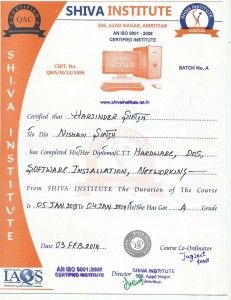 SHIVA INSTITUTE
508, AZAD NAGAR, AMRITSAR
AN ISO 9001 : 2008
CERTIFIED INSTITUTE
QAC
CERT. No.
QMS/10/13/1696
BATCH No. A
www.shivainstitute.co.in
SHIVA INSTITUTE
Certified that Harjinder Singh
S/o D/o Nishan Singh
has Completed His/Her Diploma C.T.T. Hardware, DOS,
Software Installation, Networking
From SHIVA INSTITUTE The Duration of The Course
is 05 JAN 2013 to 04 JAN 2014 He/She Has Got A Grade
Date 03.FEB.2014
Course Co-Ordinator
AN ISO 9001:2008
CERTIFIED INSTITUTE
Director
SHIVA INSTITUTE
508, Azad Nagar
Amritsar
IAQS